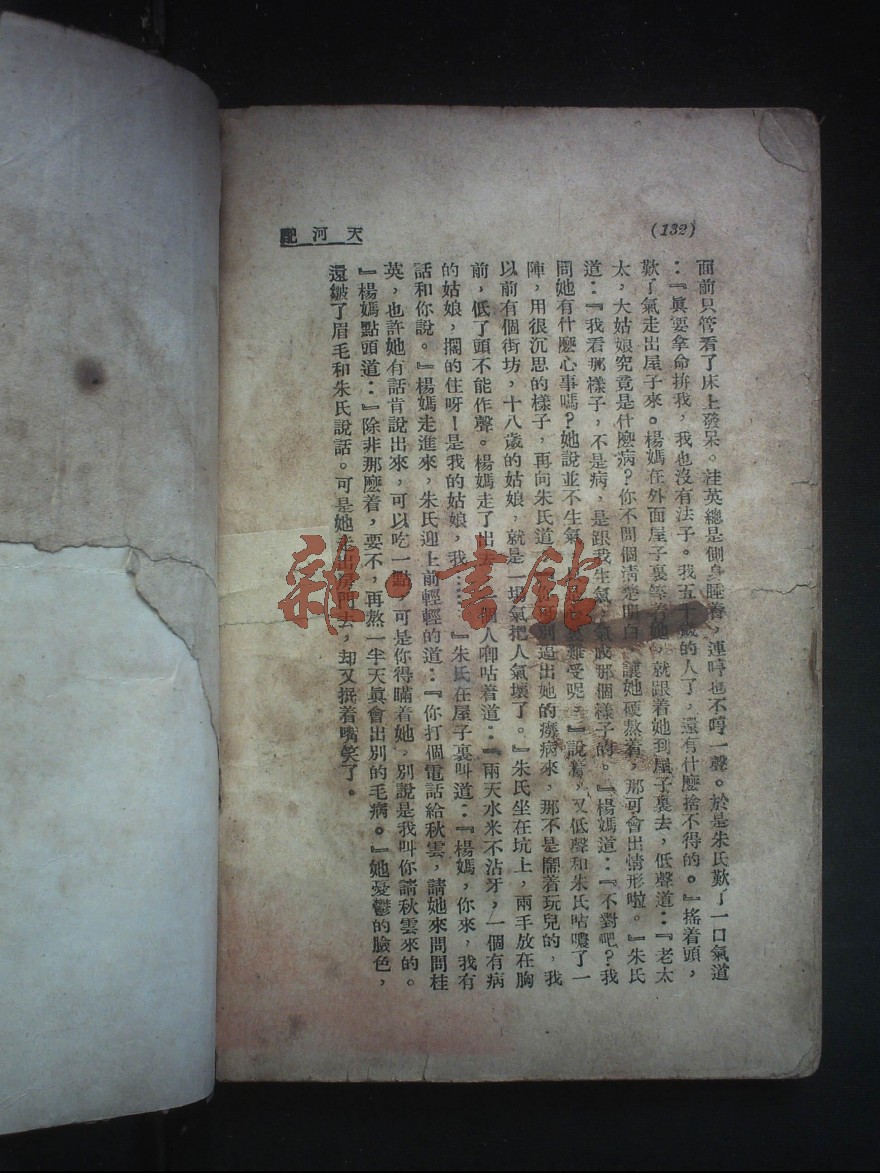 (132)
天河配
面前只管看了床上發呆。桂英總是側身睡着，連哼也不哼一聲。於是朱氏歎了一口氣道
：『眞要拿命拚我，我也沒有法子。我五十歲的人了，還有什麽捨不得的。』搖着頭，
歎了氣走出屋子來。楊媽在外面屋子裏等着她，就跟着她到屋子裏去，低聲道：『老太
太，大姑娘究竟是什麽病？你不問個淸楚明白，讓她硬熬着，那可會出情形啦。』朱氏
道：『我看那樣子，不是病，是跟我生氣，氣成那個樣子的。』楊媽道：『不對吧？我
問她有什麽心事嗎？她說並不生氣 難受呢。』說着，又低聲和朱氏咕噥了一
陣，用很沉思的樣子，再向朱氏道 別逼出她的癆病來，那不是鬧着玩兒的，我
以前有個街坊，十八歲的姑娘，就是一場氣把人氣壞了。』朱氏坐在坑上，兩手放在胸
前，低了頭不能作聲。楊媽走了出去，一個人唧咕着道：『兩天水米不沾牙，一個有病
的姑娘，擱的住呀！是我的姑娘，我……』朱氏在屋子裏叫道：『楊媽，你來，我有
話和你說。』楊媽走進來，朱氏迎上前輕輕的道：『你打個電話給秋雲，請她來問問桂
英，也許她有話肯說出來，可以吃一點 可是你得瞞着她，別說是我叫你請秋雲來的。
』楊媽點頭道：『除非那麽着，要不，再熬一半天眞會出別的毛病。』她憂鬱的臉色，
還皺了眉毛和朱氏說話。可是她走出房門去，却又抿着嘴笑了。
雜·書館